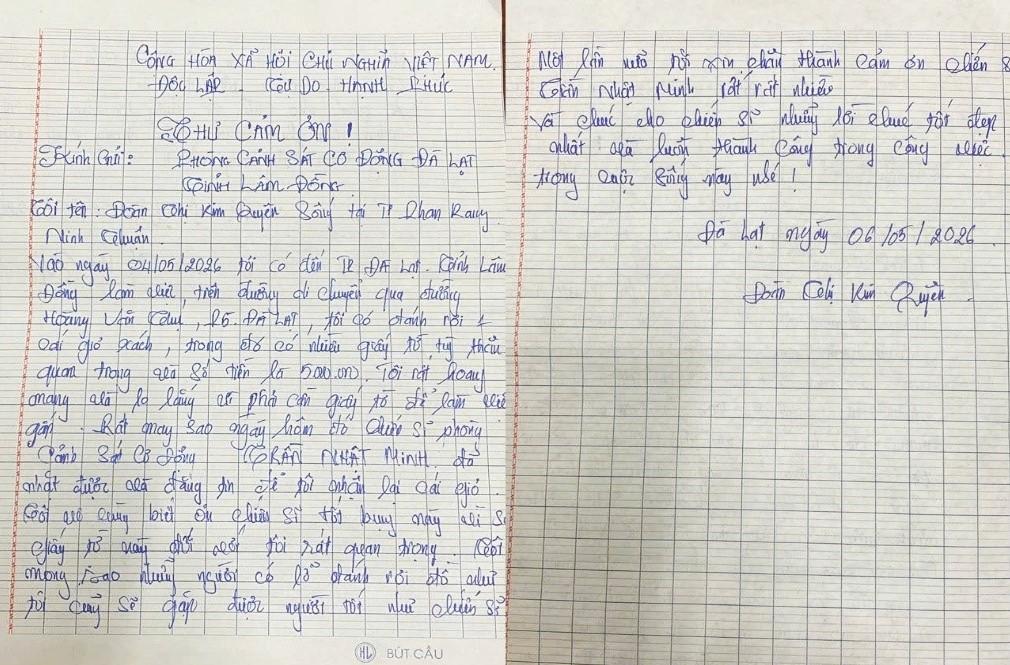 CỘNG HÒA XÃ HỘI CHỦ NGHĨA VIỆT NAM.
ĐỘC LẬP - TỰ DO - HẠNH PHÚC
THƯ CẢM ƠN!
Kính Gửi: PHÒNG CẢNH SÁT CƠ ĐỘNG ĐÀ LẠT
TỈNH LÂM ĐỒNG.
Tôi tên: Đoàn Thị Kim Quyên Sống tại TP Phan Rang.
Ninh Thuận.
Vào ngày 04/05/2026 tôi có đến TP ĐÀ LẠT. Tỉnh Lâm
Đồng làm việc, trên đường di chuyển qua đường
Hoàng Văn Thụ, P5. ĐÀ LẠT, tôi có đánh rơi 1
cái giỏ xách, trong đó có nhiều giấy tờ tùy thân
quan trọng và số tiền là 500.000. Tôi rất hoang
mang và lo lắng vì phải cần giấy tờ để làm việc
gấp. Rất may sao ngay hôm đó Chiến Sĩ phòng
Cảnh Sát Cơ Động TRẦN NHẬT MINH đã
nhặt được và đăng tin để tôi nhận lại cái giỏ.
Tôi vô cùng biết ơn chiến sĩ tốt bụng này vì số
giấy tờ này đối với tôi rất quan trọng. Tôi
mong sao những người có lỡ đánh rơi đồ như
tôi cũng sẽ gặp được người tốt như chiến sĩ
Một lần nữa tôi xin chân thành cảm ơn chiến sĩ
Trần Nhật Minh rất rất rất nhiều
Và chúc cho chiến sĩ những lời chúc tốt đẹp
nhất và luôn thành công trong công việc.
trong cuộc sống này nhé!
Đà Lạt ngày 06/05/2026.
Đoàn Thị Kim Quyên.
HL BÚT CẦU